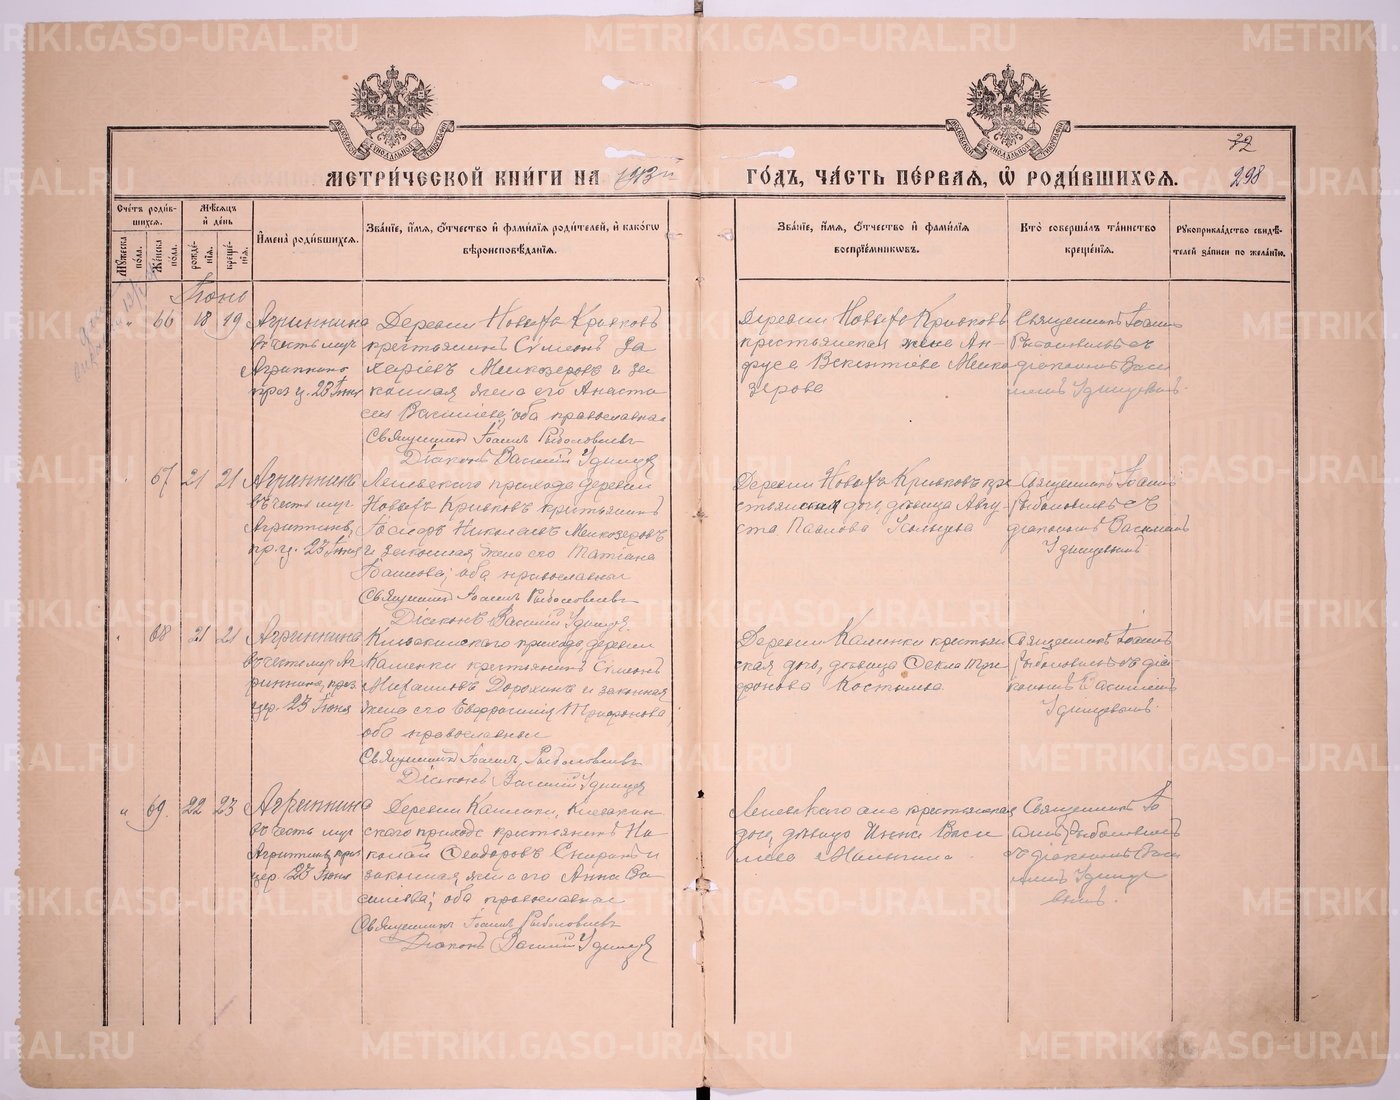 72
МЕТРИ́ЧЕСКОЙ КНИ́ГИ НА 1913й ГО́ДЪ, ЧА́СТЬ ПЕ́РВАЯ, Ѡ РОДИ́ВШИХСЯ.
298
Сче́тъ роди́вшихся.
Мꙋ́жеска по́ла.
Же́нска по́ла.
Мѣ́сяцъ и де́нь
рожде́нїя.
креще́нїя.
И҆мена̀ роди́вшихся.
Зва́нїе, и҆́мя, ѻ҆́тчество и҆ фами́лїя роди́телей, и҆ како́гѡ вѣроисповѣ́данїя.
Зва́нїе, и҆́мя, ѻ҆́тчество и҆ фами́лїя воспрїе́мникѡвъ.
Кто̀ соверша́лъ та́инство креще́нїя.
Рꙋкоприкла́дство свидѣ́телей за́писи по жела́нїю.
Іюнь
" 66 18 19 Агриппина
въ честь муч.
Агриппины
празд. 23 Іюня
Деревни Новыхъ Кривковъ
крестьянинъ Сѵмеонъ За
харіевъ Мелкозеровъ и за
конная жена его Анаста
сія Василіева; оба православные
Священникъ Іоаннъ Рыболовлевъ
Діаконъ Василій Удинцевъ
Деревни Новыхъ Кривковъ
крестьянская жена
Викентіева Мелко
зерова
Священникъ Іоаннъ
Рыболовлевъ съ
діакономъ Васи
ліемъ Удинцевымъ.
67 21 21 Агриппина
въ честь муч.
Агриппины,
пр. 23 Іюня
Леневскаго прихода деревни
Новыхъ Кривковъ крестьянинъ
Николаевъ Мелкозеровъ
и законная жена его Татіана
Іоаннова; оба православные
Священникъ Іоаннъ Рыболовлевъ
Діаконъ Василій Удинцевъ
Деревни Новыхъ Кривковъ кре
стьянская дочь, дѣвица Авгу
ста Павлова
Священникъ Іоаннъ
Рыболовлевъ съ
діакономъ Василіемъ
Удинцевымъ
" 68 21 21 Агриппина
въ честь муч. Аг
риппины, праз.
23 Іюня
прихода деревни
Каменки крестьянинъ Сѵмеонъ
Михаиловъ Дорохинъ и законная
жена его Евфросинія Трифонова,
оба православные
Священникъ Іоаннъ Рыболовлевъ
Діаконъ Василій Удинцевъ
Деревни Каменки крестьян
ская дочь, дѣвица Ѳекла Три
фонова Костылева.
Священникъ Іоаннъ
Рыболовлевъ съ діа
кономъ Василіемъ
Удинцевымъ.
" 69. 22 23 Агриппина
въ честь муч.
Агриппины, праз.
23 Іюня
Деревни Каменки,
скаго прихода крестьянинъ Ни
колай Ѳеодоровъ и
законная жена его Анна Ва
силіева; оба православные
Священникъ Іоаннъ Рыболовлевъ
Діаконъ Василій Удинцевъ
Леневскаго села крестьянская
дочь, дѣвица Васи
ліева Малыгина
Священникъ Іо
аннъ Рыболовлевъ
съ діакономъ Васи
ліемъ Удинце
вымъ.
METRIKI.GASO-URAL.RU